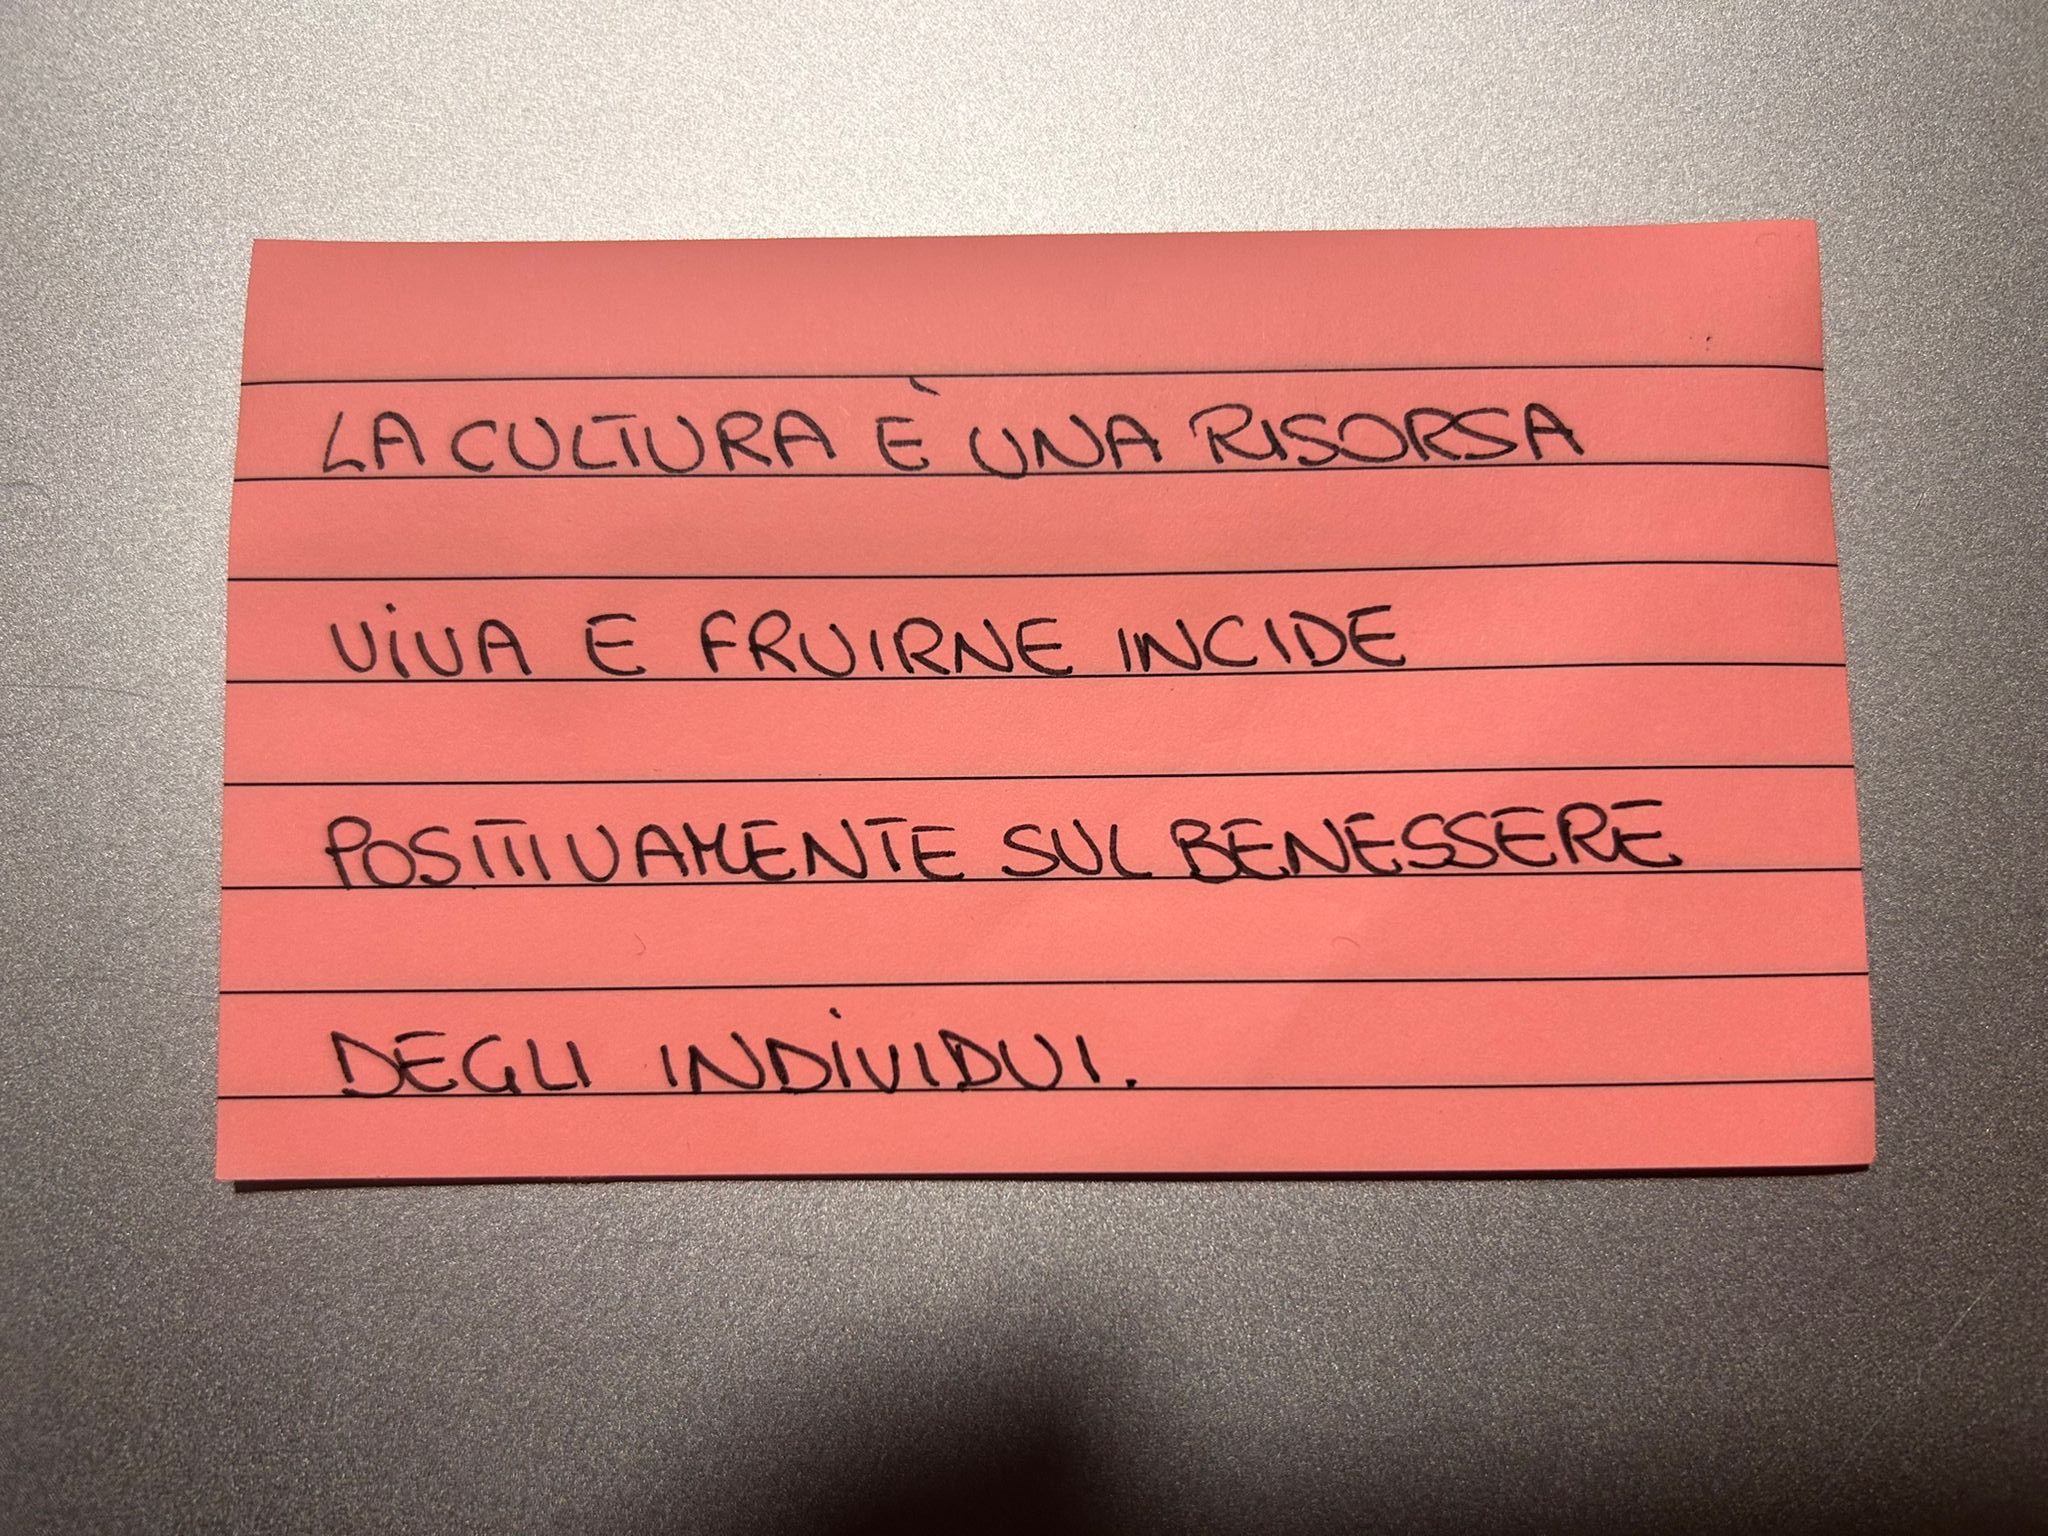 LA CULTURA È UNA RISORSA
VIVA E FRUIRNE INCIDE
POSITIVAMENTE SUL BENESSERE
DEGLI INDIVIDUI.